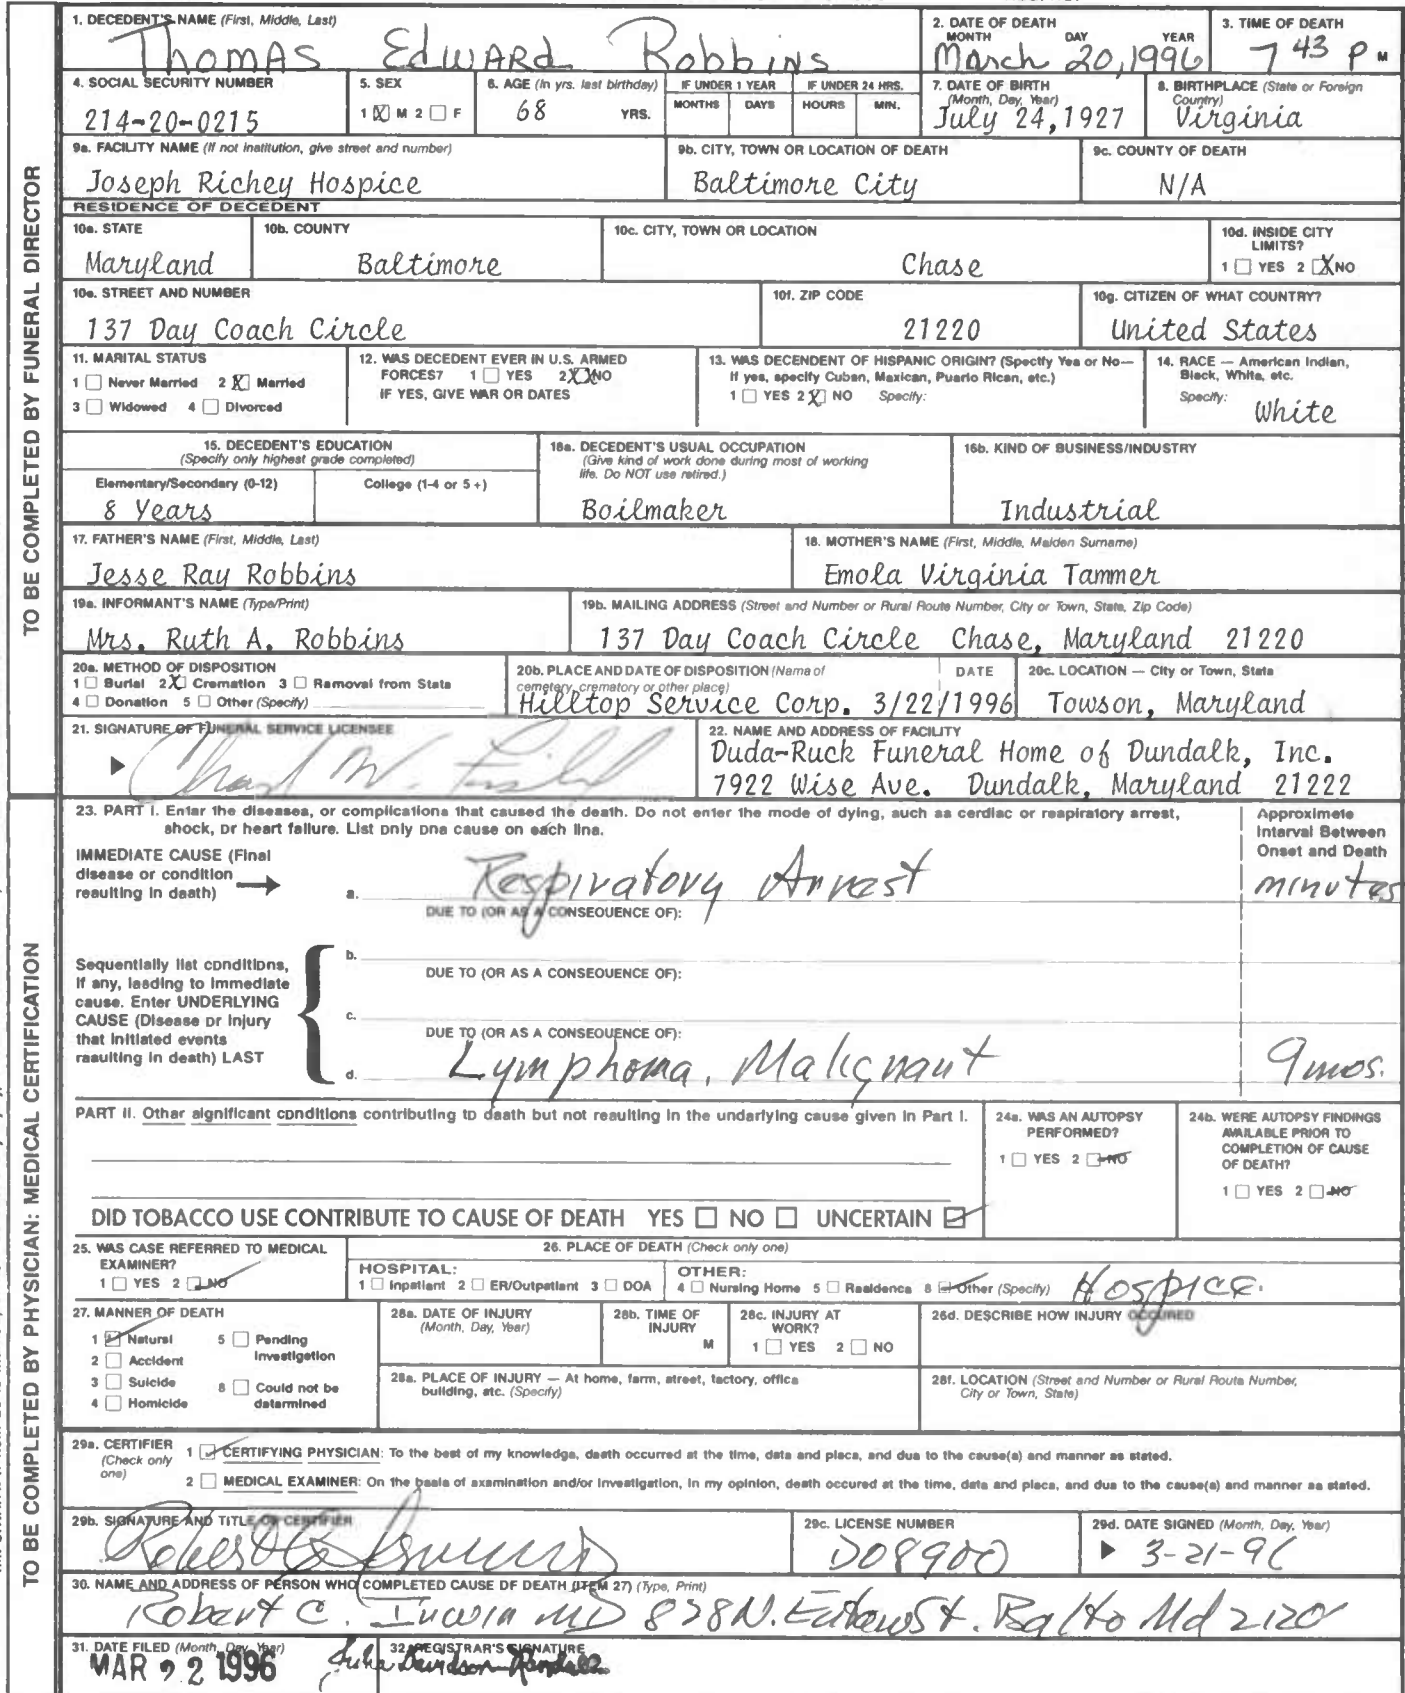 1. DECEDENT'S NAME (First, Middle, Last)
Thomas Edward Robbins
2. DATE OF DEATH
MONTH DAY YEAR
March 20, 1996
3. TIME OF DEATH
7 43 P M
4. SOCIAL SECURITY NUMBER
214-20-0215
5. SEX
1 ☒ M 2 ☐ F
6. AGE (In yrs. last birthday)
68 YRS.
IF UNDER 1 YEAR
MONTHS DAYS
IF UNDER 24 HRS.
HOURS MIN.
7. DATE OF BIRTH
(Month, Day, Year)
July 24, 1927
8. BIRTHPLACE (State or Foreign
Country)
Virginia
9a. FACILITY NAME (If not institution, give street and number)
Joseph Richey Hospice
9b. CITY, TOWN OR LOCATION OF DEATH
Baltimore City
9c. COUNTY OF DEATH
N/A
RESIDENCE OF DECEDENT
10a. STATE
Maryland
10b. COUNTY
Baltimore
10c. CITY, TOWN OR LOCATION
Chase
10d. INSIDE CITY
LIMITS?
1 ☐ YES 2 ☒ NO
10e. STREET AND NUMBER
137 Day Coach Circle
10f. ZIP CODE
21220
10g. CITIZEN OF WHAT COUNTRY?
United States
11. MARITAL STATUS
1 ☐ Never Married 2 ☒ Married
3 ☐ Widowed 4 ☐ Divorced
12. WAS DECEDENT EVER IN U.S. ARMED
FORCES? 1 ☐ YES 2 ☒ NO
IF YES, GIVE WAR OR DATES
13. WAS DECENDENT OF HISPANIC ORIGIN? (Specify Yes or No—
If yes, specify Cuban, Mexican, Puerto Rican, etc.)
1 ☐ YES 2 ☒ NO Specify:
14. RACE — American Indian,
Black, White, etc.
Specify:
White
15. DECEDENT'S EDUCATION
(Specify only highest grade completed)
Elementary/Secondary (0-12)
8 Years
College (1-4 or 5+)
16a. DECEDENT'S USUAL OCCUPATION
(Give kind of work done during most of working
life. Do NOT use retired.)
Boilmaker
16b. KIND OF BUSINESS/INDUSTRY
Industrial
17. FATHER'S NAME (First, Middle, Last)
Jesse Ray Robbins
18. MOTHER'S NAME (First, Middle, Maiden Surname)
Emola Virginia Tammer
19a. INFORMANT'S NAME (Type/Print)
Mrs. Ruth A. Robbins
19b. MAILING ADDRESS (Street and Number or Rural Route Number, City or Town, State, Zip Code)
137 Day Coach Circle Chase, Maryland 21220
20a. METHOD OF DISPOSITION
1 ☐ Burial 2 ☒ Cremation 3 ☐ Removal from State
4 ☐ Donation 5 ☐ Other (Specify)
20b. PLACE AND DATE OF DISPOSITION (Name of
cemetery, crematory or other place) DATE
Hilltop Service Corp. 3/22/1996
20c. LOCATION — City or Town, State
Towson, Maryland
21. SIGNATURE OF FUNERAL SERVICE LICENSEE
22. NAME AND ADDRESS OF FACILITY
Duda-Ruck Funeral Home of Dundalk, Inc.
7922 Wise Ave. Dundalk, Maryland 21222
TO BE COMPLETED BY FUNERAL DIRECTOR
23. PART I. Enter the diseases, or complications that caused the death. Do not enter the mode of dying, such as cardiac or respiratory arrest,
shock, or heart failure. List only one cause on each line.
Approximate
Interval Between
Onset and Death
IMMEDIATE CAUSE (Final
disease or condition
resulting in death)
a. Respiratory Arrest minutes
DUE TO (OR AS A CONSEQUENCE OF):
Sequentially list conditions,
if any, leading to immediate
cause. Enter UNDERLYING
CAUSE (Disease or injury
that initiated events
resulting in death) LAST
b.
DUE TO (OR AS A CONSEQUENCE OF):
c.
DUE TO (OR AS A CONSEQUENCE OF):
d. Lymphoma, Malignant 9 mos.
PART II. Other significant conditions contributing to death but not resulting in the underlying cause given in Part I.
24a. WAS AN AUTOPSY
PERFORMED?
1 ☐ YES 2 ☒ NO
24b. WERE AUTOPSY FINDINGS
AVAILABLE PRIOR TO
COMPLETION OF CAUSE
OF DEATH?
1 ☐ YES 2 ☒ NO
DID TOBACCO USE CONTRIBUTE TO CAUSE OF DEATH YES ☐ NO ☐ UNCERTAIN ☑
25. WAS CASE REFERRED TO MEDICAL
EXAMINER?
1 ☐ YES 2 ☑ NO
26. PLACE OF DEATH (Check only one)
HOSPITAL:
1 ☐ Inpatient 2 ☐ ER/Outpatient 3 ☐ DOA
OTHER:
4 ☐ Nursing Home 5 ☐ Residence 8 ☑ Other (Specify) Hospice.
27. MANNER OF DEATH
1 ☑ Natural 5 ☐ Pending
Investigation
2 ☐ Accident
3 ☐ Suicide 8 ☐ Could not be
determined
4 ☐ Homicide
28a. DATE OF INJURY
(Month, Day, Year)
28b. TIME OF
INJURY
M
28c. INJURY AT
WORK?
1 ☐ YES 2 ☐ NO
28d. DESCRIBE HOW INJURY OCCURED
28e. PLACE OF INJURY — At home, farm, street, factory, office
building, etc. (Specify)
28f. LOCATION (Street and Number or Rural Route Number,
City or Town, State)
29a. CERTIFIER
(Check only
one)
1 ☑ CERTIFYING PHYSICIAN: To the best of my knowledge, death occurred at the time, date and place, and due to the cause(s) and manner as stated.
2 ☐ MEDICAL EXAMINER: On the basis of examination and/or investigation, in my opinion, death occured at the time, date and place, and due to the cause(s) and manner as stated.
29b. SIGNATURE AND TITLE OF CERTIFIER
29c. LICENSE NUMBER
D08900
29d. DATE SIGNED (Month, Day, Year)
3-21-96
30. NAME AND ADDRESS OF PERSON WHO COMPLETED CAUSE OF DEATH (ITEM 27) (Type, Print)
Robert C. Irwin MD 828 N. Eutaw St. Balto Md
31. DATE FILED (Month, Day, Year)
MAR 22 1996
32. REGISTRAR'S SIGNATURE
TO BE COMPLETED BY PHYSICIAN: MEDICAL CERTIFICATION